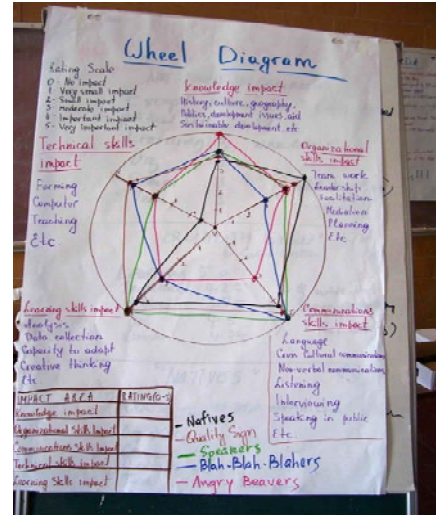 Wheel Diagram
Rating Scale
0 - No impact
1 - Very small impact
2 - Small impact
3 - moderate impact
4 - Important impact
5 - Very important impact
Knowledge impact
History, culture, geography,
Politics, development issues, aid
Sustainable development, etc
Technical skills
impact
Farming
Computer
Teaching
Etc
Organizational
skills impact
Team work
Leadership
Facilitation
Mediation
Planning
Etc
Learning skills impact
Analysis
Data collection
Capacity to adapt
Creative thinking
Etc
Communications
skills impact
Language
Cross Cultural communication
Non-verbal communication
Listening
Interviewing
Speaking in public
Etc.
IMPACT AREA RATING (0-5)
Knowledge impact
Organizational skills impact
Communications skills impact
Technical skills impact
Learning skills impact
- Natives
- Quality Sign
- Speakers
- Blah-Blah-Blahers
- Angry Beavers